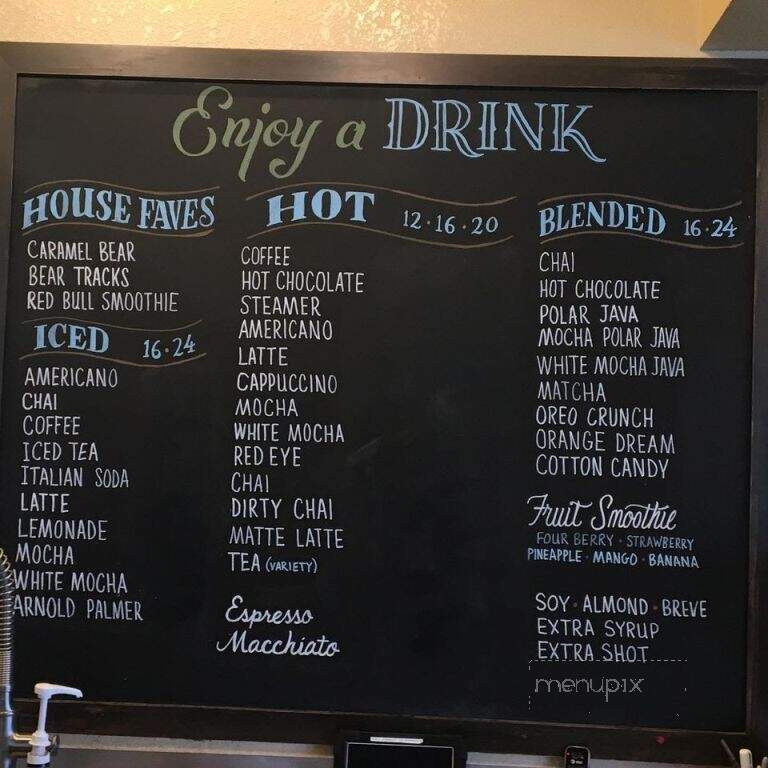 Enjoy a DRINK
HOUSE FAVES
CARAMEL BEAR
BEAR TRACKS
RED BULL SMOOTHIE
ICED 16·24
AMERICANO
CHAI
COFFEE
ICED TEA
ITALIAN SODA
LATTE
LEMONADE
MOCHA
WHITE MOCHA
ARNOLD PALMER
HOT 12·16·20
COFFEE
HOT CHOCOLATE
STEAMER
AMERICANO
LATTE
CAPPUCCINO
MOCHA
WHITE MOCHA
RED EYE
CHAI
DIRTY CHAI
MATTE LATTE
TEA (VARIETY)
Espresso
Macchiato
BLENDED 16·24
CHAI
HOT CHOCOLATE
POLAR JAVA
MOCHA POLAR JAVA
WHITE MOCHA JAVA
MATCHA
OREO CRUNCH
ORANGE DREAM
COTTON CANDY
Fruit Smoothie
FOUR BERRY · STRAWBERRY
PINEAPPLE · MANGO · BANANA
SOY · ALMOND · BREVE
EXTRA SYRUP
EXTRA SHOT
menupix